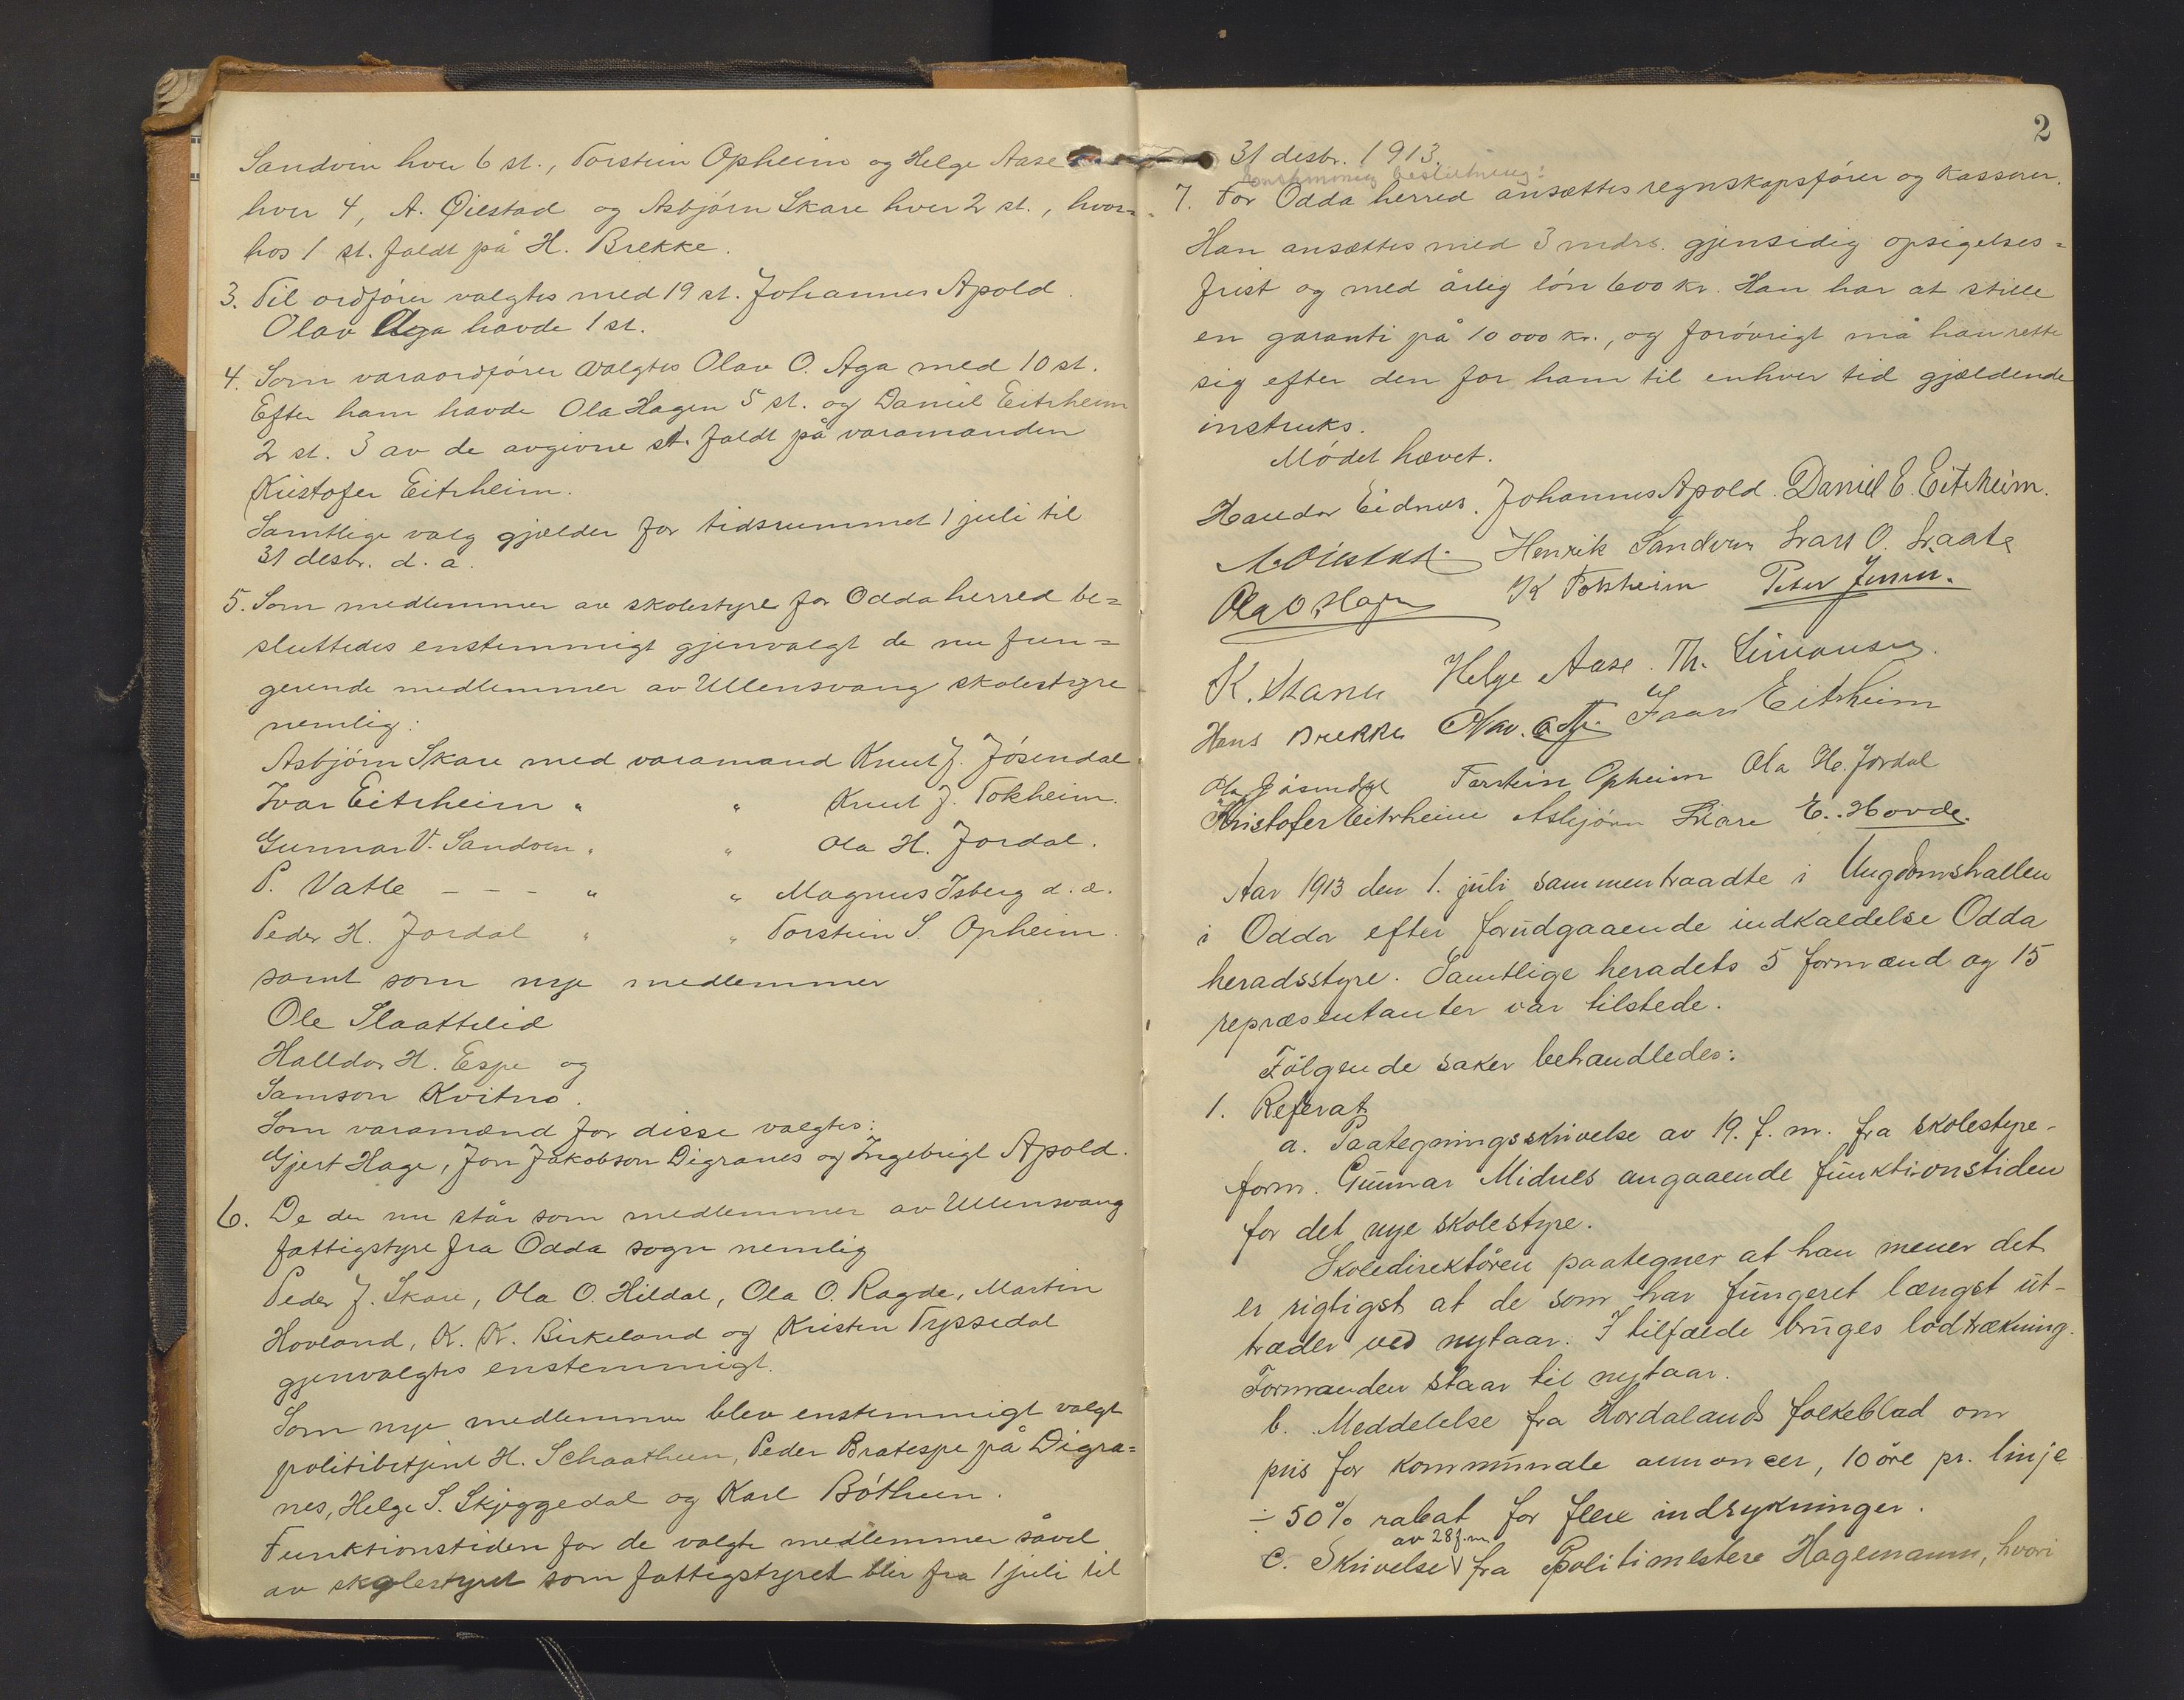 Sandvin hver 6 st., Torstein Opheim og Helge Aase
hver 4, A. Øiestad og Asbjörn Skare hver 2 st., hvor=
hos 1 st. faldt på H. Brekke.
3. Til ordförer valgtes med 19 st. Johannes Apold.
Olav Aga havde 1 st.
4. Som varaordförer valgtes Olav O. Aga med 10 st.
Efter ham havde Ola Hagen 5 st. og Daniel Eitrheim
2 st. 3 av de avgivne st. faldt på varamanden
Kristofer Eitrheim.
Samtlige valg gjælder for tidsrummet 1 juli til
31 desbr. d. a.
5. Som medlemmer av skolestyre for Odda herred be=
sluttedes enstemmigt gjenvalgt de nu fun=
gerende medlemmer av Ullensvang skolestyre
nemlig:
Asbjörn Skare med varamand Knut J. Jösendal
Ivar Eitrheim " " Knut J. Tokheim.
Gunnar V. Sandven " " Ola H. Jordal.
P. Vatle - - - " " Magnus Isberg d. æ.
Peder H. Jordal " " Torstein S. Opheim.
samt som nye medlemmer
Ole Slaattelid
Halldor H. Espe og
Samson Kvitno.
Som varamænd for disse valgtes:
Gjert Hage, Jon Jakobson Digranes og Ingebrigt Apold.
6. De der nu står som medlemmer av Ullensvang
fattigstyre fra Odda sogn nemlig
Peder J. Skare, Ola O. Hildal, Ola O. Ragde, Martin
Hovland, K. K. Birkeland og Kristen Tyssedal
gjenvalgtes enstemmigt.
Som nye medlemmer blev enstemmigt valgt
politibetjent H. Schaathun, Peder Bratespe på Digra=
nes, Helge S. Skjeggedal og Karl Böthun.
Funktionstiden for de valgte medlemmer såvel
av skolestyret som fattigstyret blir fra 1 juli til
2
31 desbr. 1913.
Enstemmig beslutning:
7. For Odda herred ansættes regnskapsförer og kasserer.
Han ansættes med 3 mdrs. gjensidig opsigelses=
frist og med årlig lön 600 kr. Han har at stille
en garanti på 10 000 kr., og forövrigt må han rette
sig efter den for ham til enhver tid gjældende
instruks.
Mödet hævet.
Haldor Eidnes. Johannes Apold. Daniel E. Eitrheim.
A. Øiestad. Henrik Sandven Lars O. Laate
Ola O. Hagen K Tokheim Peter Jensen.
K. Helge Aase. Th. Simonsen.
Hans Brekke Olav. O. Aga. Ivar Eitrheim
Ola Jösendal Torstein Opheim Ola H. Jordal
Kristofer Eitrheim Asbjörn Skare E. Hovde.
Aar 1913 den 1. juli sammentraadte i Ungdomshallen
i Odda efter forudgaaende indkaldelse Odda
heradsstyre. Samtlige heradets 5 formænd og 15
repræsentanter var tilstede.
Fölgende saker behandledes:
1. Referat
a. Paategningsskrivelse av 19. f. m. fra skolestyre-
form. Gunnar Midnes angaaende funktionstiden
for det nye skolestyre.
Skoledirektören paategner at han mener det
er rigtigst at de som har fungeret længst ut-
træder ved nytaar. I tilfælde bruges lodtrækning.
Formanden staar til nytaar.
b. Meddelelse fra Hordalands folkeblad om
pris for kommunale annoncer, 10 öre pr. linje
÷ 50% rabat for flere indrykninger.
av 28 f. m.
c. Skrivelse fra Politimester Hagemann, hvori